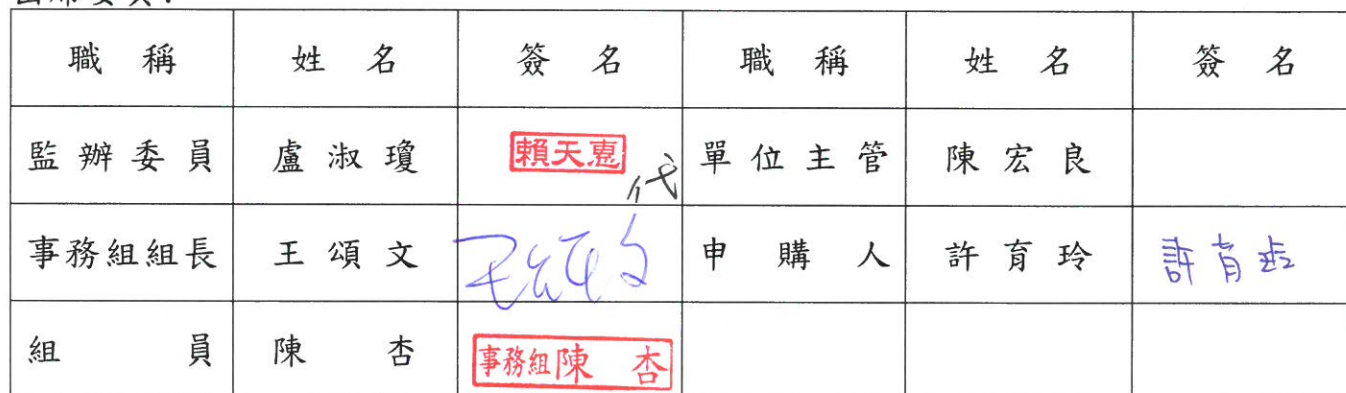 出席委員：
職稱 姓名 簽名 職稱 姓名 簽名
監辦委員 盧淑瓊 賴天惠 代 單位主管 陳宏良
事務組組長 王頌文 王頌文 申購人 許育玲 許育玲
組員 陳杏 事務組陳杏